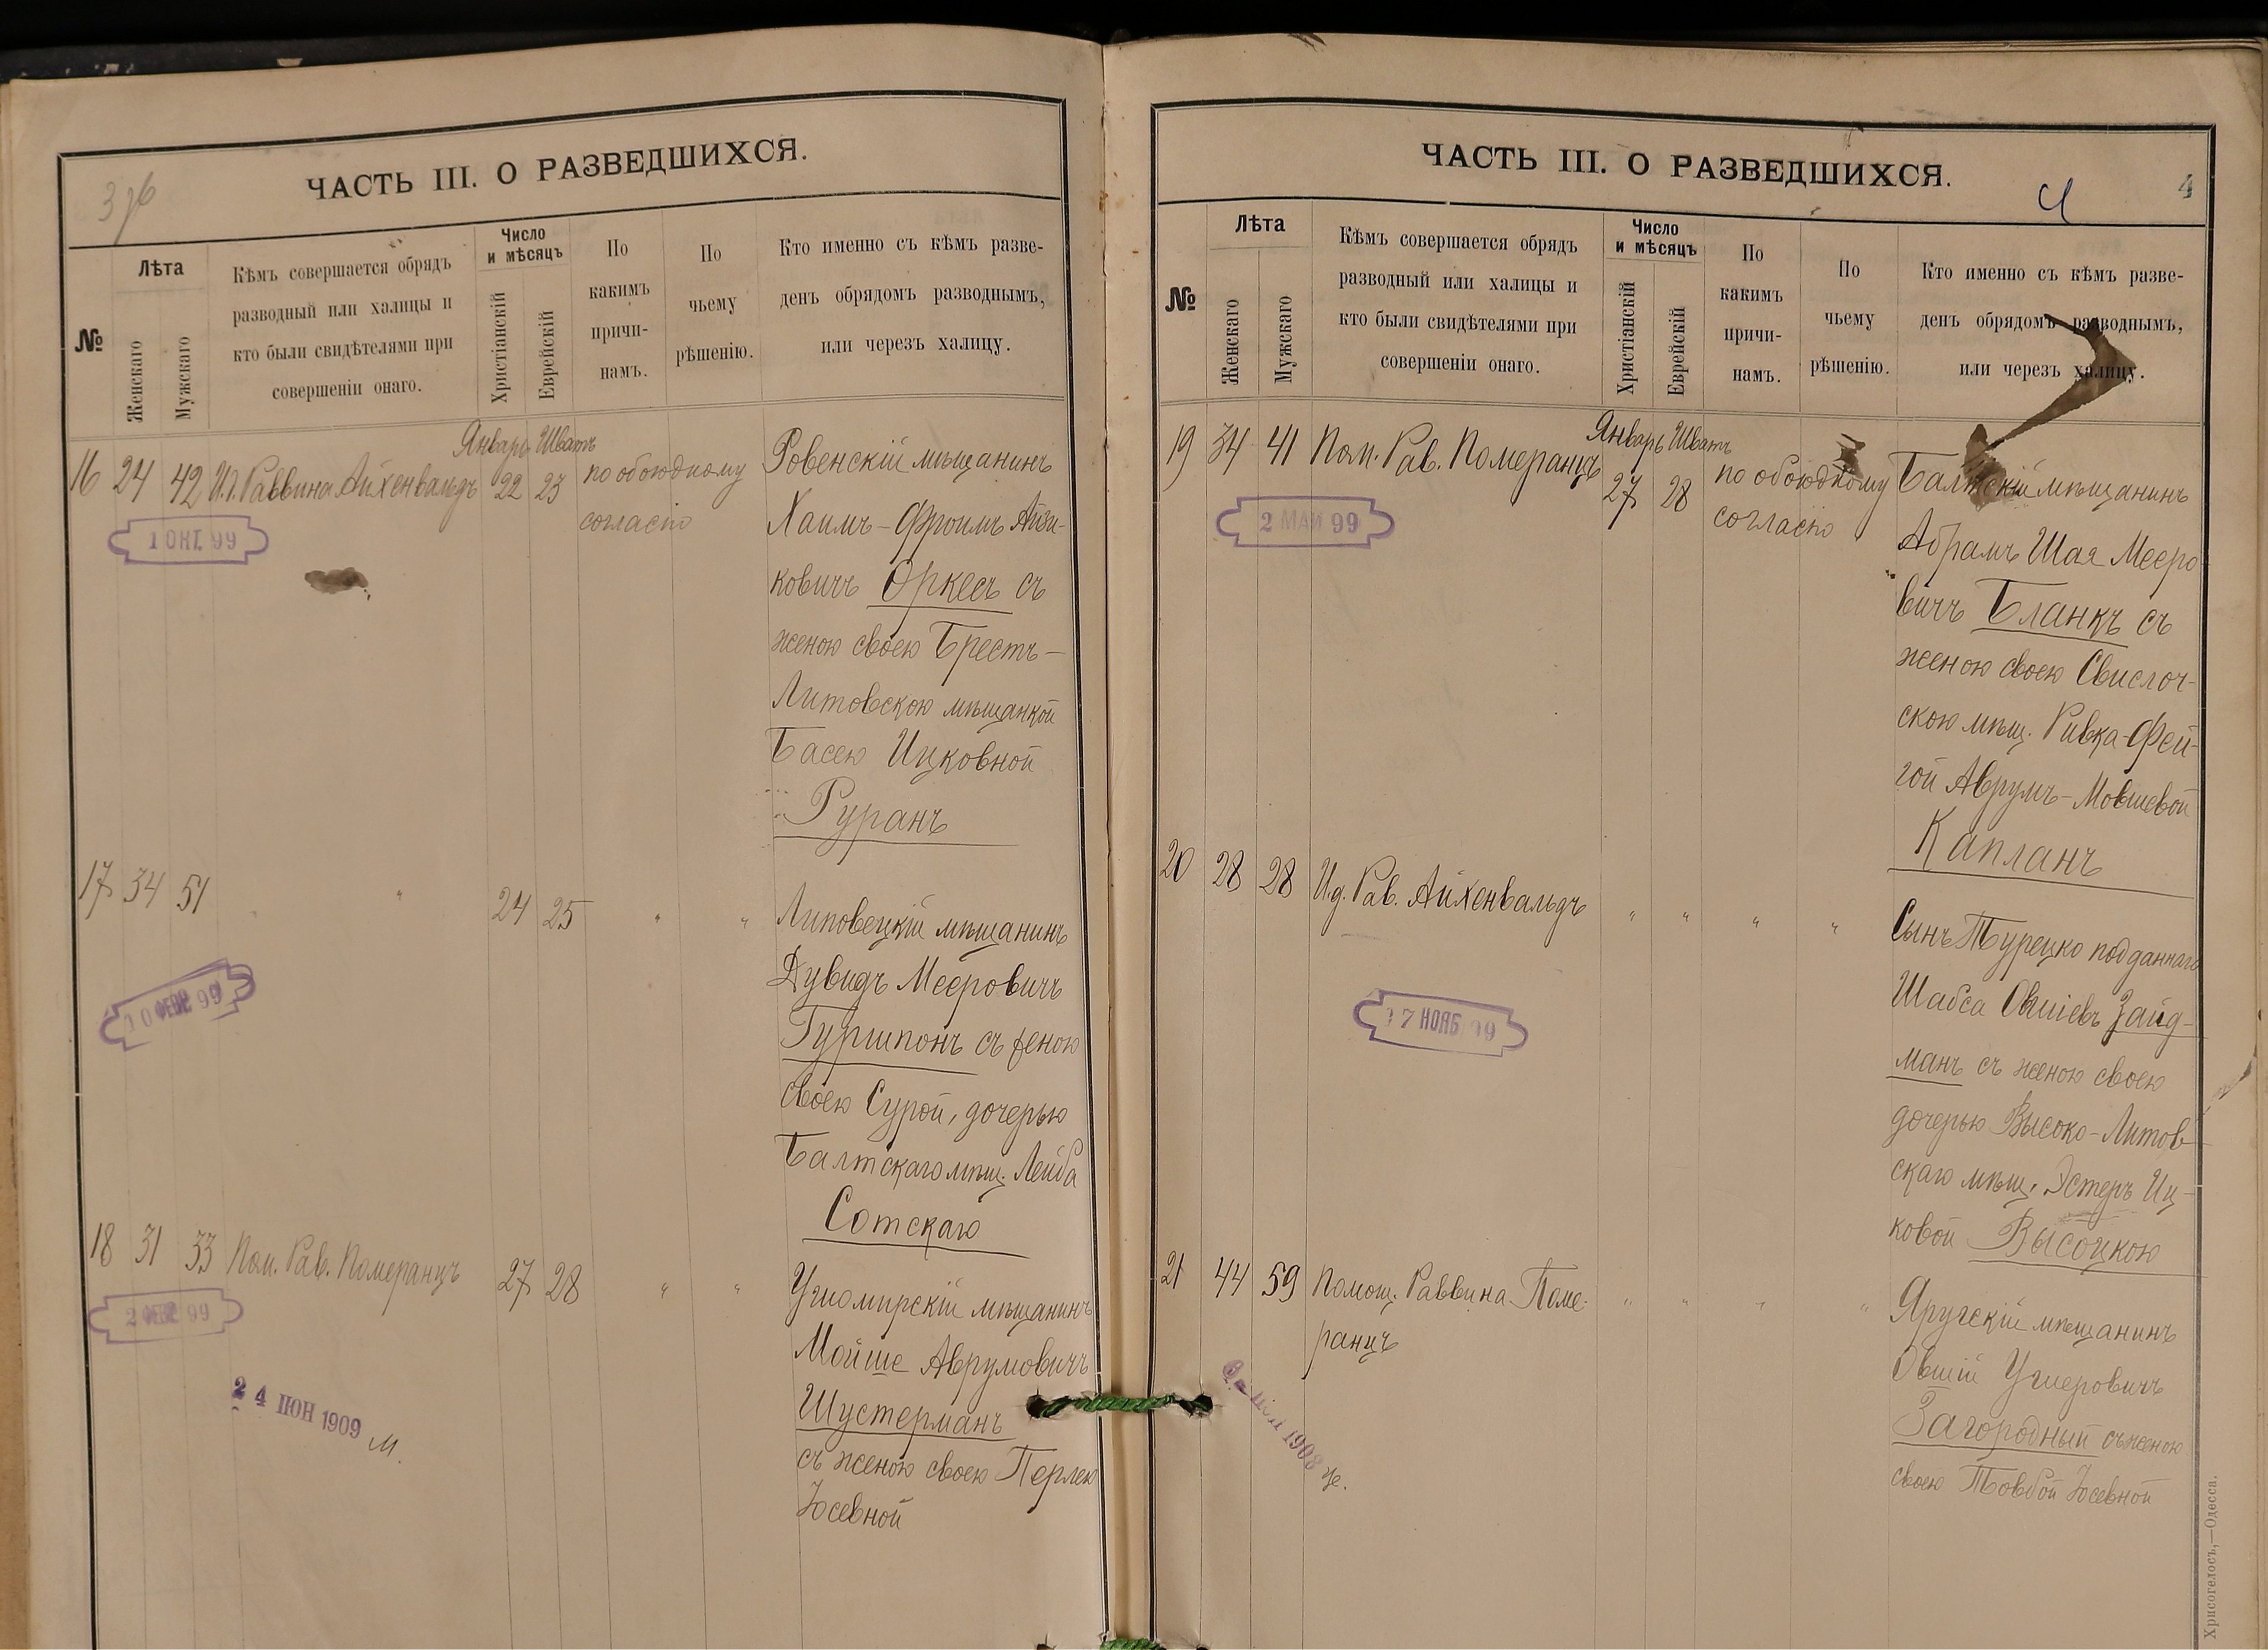 3 об
ЧАСТЬ III. О РАЗВЕДШИХСЯ.
№
Лѣта
Женскаго
Мужскаго
Кѣмъ совершается обрядъ
разводный или халицы и
кто были свидѣтелями при
совершеніи онаго.
Число
и мѣсяцъ
Христіанскій
Еврейскій
По
какимъ
причи-
намъ.
По
чьему
рѣшенію.
Кто именно съ кѣмъ разве-
денъ обрядомъ разводнымъ,
или черезъ халицу.
Январь Шватъ
16 24 42 И. д. Раввина Айхенвальдъ 22 23 по обоюдному
согласію
1 ОКТ. 99
Ровенскій мѣщанинъ
Хаимъ-Фроимъ Айзи-
ковичъ Оркесъ съ
женою своею Брестъ-
Литовскою мѣщанкой
Басею Ицковной
Руранъ
17 34 51 " 24 25 " "
ФЕВР 99
Липовецкій мѣщанинъ
Дувидъ Мееровичъ
Гуршпонъ съ женою
своею Сурой, дочерью
Балтскаго мѣщ. Лейба
Сотскаго
18 31 33 Пом. Рав. Померанцъ 27 28 " "
99
2 4 ІЮН 1909
М.
Ушомирскій мѣщанинъ
Мойше Аврумовичъ
Шустерманъ
съ женою своею Перлею
Іосевной
ЧАСТЬ III. О РАЗВЕДШИХСЯ.
4
4
№
Лѣта
Женскаго
Мужскаго
Кѣмъ совершается обрядъ
разводный или халицы и
кто были свидѣтелями при
совершеніи онаго.
Число
и мѣсяцъ
Христіанскій
Еврейскій
По
какимъ
причи-
намъ.
По
чьему
рѣшенію.
Кто именно съ кѣмъ разве-
денъ обрядомъ разводнымъ,
или черезъ халицу.
Январь Шватъ
19 34 41 Пом. Рав. Померанцъ 27 28 по обоюдному
согласію
2 МАЙ 99
Балтскій мѣщанинъ
Абрамъ Шая Мееро
вичъ Бланкъ съ
женою своею Свислоч-
скою мѣщ. Ривка-Фей-
гой Аврумъ-Мовшевой
Капланъ
20 28 28 И. д. Рав. Айхенвальдъ " " " "
17 НОЯБ 99
Сынъ Турецко подданнаго
Шабса Овшіевъ Зайд-
манъ съ женою своею
дочерью Высоко-Литов-
скаго мѣщ. Эстеръ Иц-
ковой Высоцкою
21 44 59 Помощ. Раввина Поме-
ранцъ " " " "
1908
Яругскій мѣщанинъ
Овшій Ушеровичъ
Загородный съ женою
своею Товбой Іосевной
Хрисогелосъ,—Одесса.